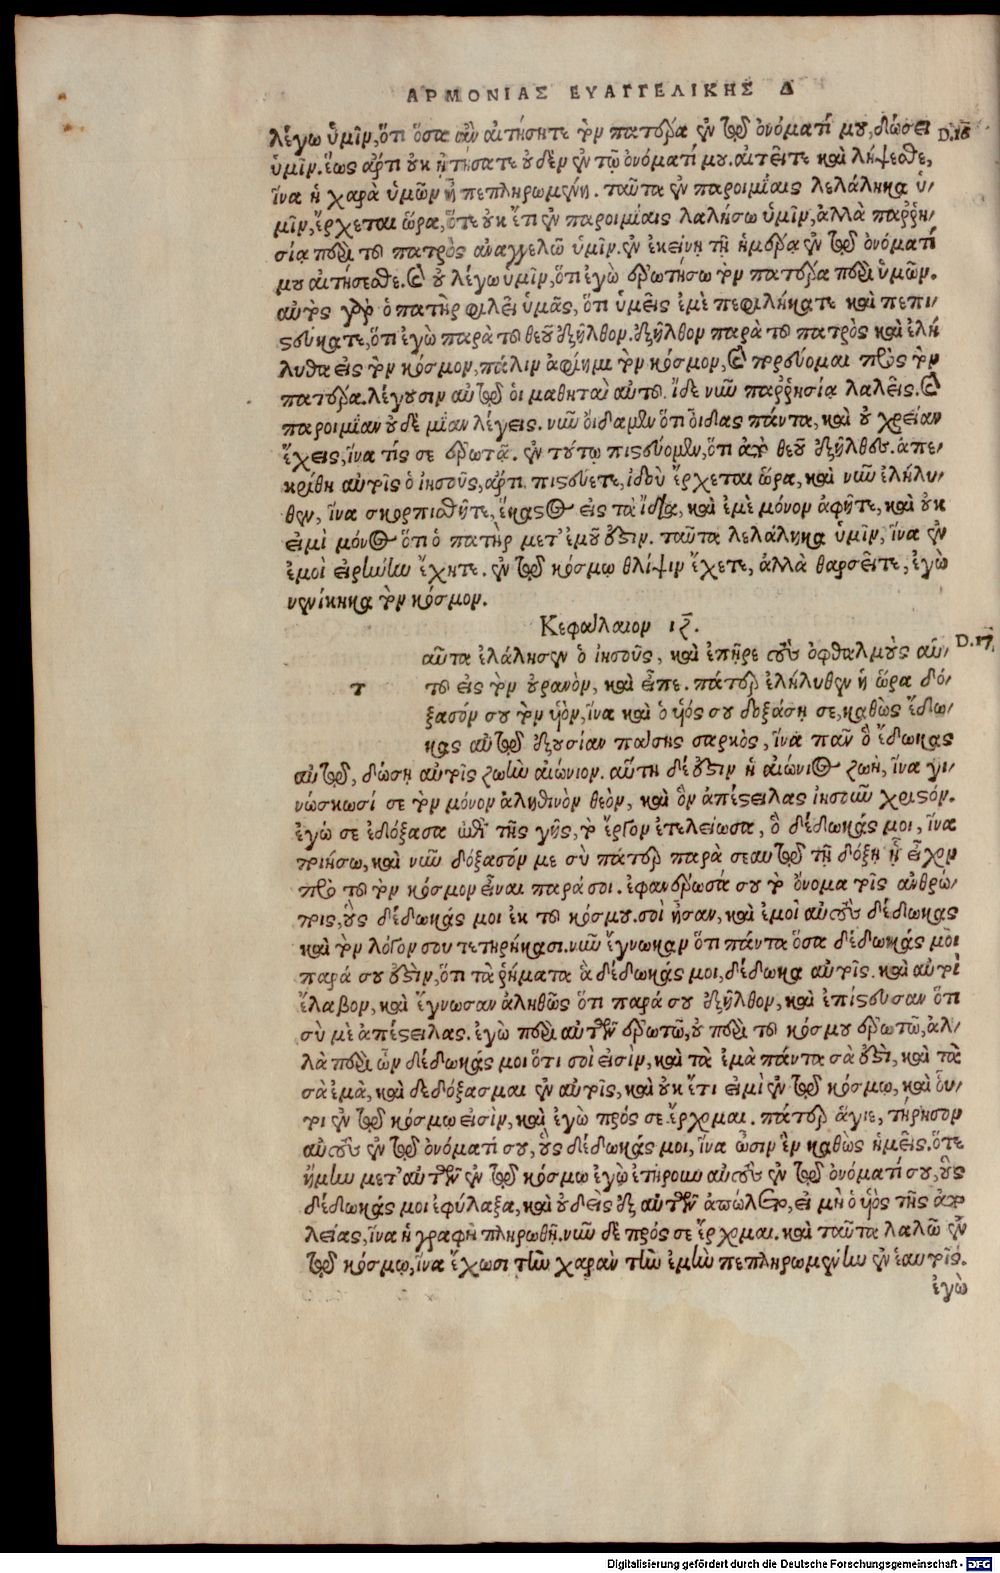 ΑΡΜΟΝΙΑΣ ΕΥΑΓΓΕΛΙΚΗΣ Δ
λέγω ὑμῖν, ὅτι ὅσα ἂν αἰτήσητε τὸν πατέρα ἐν τῷ ὀνόματί μου, δώσει D.16
ὑμῖν. ἕως ἄρτι οὐκ ᾐτήσατε οὐδὲν ἐν τῷ ὀνόματί μου. αἰτεῖτε καὶ λήψεσθε,
ἵνα ἡ χαρὰ ὑμῶν ᾖ πεπληρωμένη. ταῦτα ἐν παροιμίαις λελάληκα ὑ-
μῖν, ἔρχεται ὥρα, ὅτε οὐκ ἔτι ἐν παροιμίαις λαλήσω ὑμῖν, ἀλλὰ παῤῥη-
σίᾳ περὶ τοῦ πατρὸς ἀναγγελῶ ὑμῖν. ἐν ἐκείνῃ τῇ ἡμέρᾳ ἐν τῷ ὀνόματί
μου αἰτήσεσθε. καὶ οὐ λέγω ὑμῖν, ὅτι ἐγὼ ἐρωτήσω τὸν πατέρα περὶ ὑμῶν.
αὐτὸς γὰρ ὁ πατὴρ φιλεῖ ὑμᾶς, ὅτι ὑμεῖς ἐμὲ πεφιλήκατε καὶ πεπι-
στεύκατε, ὅτι ἐγὼ παρὰ τοῦ θεοῦ ἐξῆλθον. ἐξῆλθον παρὰ τοῦ πατρὸς καὶ ἐλή
λυθα εἰς τὸν κόσμον, πάλιν ἀφίημι τὸν κόσμον, καὶ πορεύομαι πρὸς τὸν
πατέρα. λέγουσιν αὐτῷ οἱ μαθηταὶ αὐτοῦ. ἴδε νῦν παῤῥησίᾳ λαλεῖς. καὶ
παροιμίαν οὐδὲ μίαν λέγεις. νῦν οἴδαμεν ὅτι οἶδας πάντα, καὶ οὐ χρείαν
ἔχεις, ἵνα τίς σε ἐρωτᾷ. ἐν τούτῳ πιστεύομεν, ὅτι ἀπὸ θεοῦ ἐξῆλθες. ἀπε-
κρίθη αὐτοῖς ὁ ἰησοῦς, ἄρτι πιστεύετε, ἰδοὺ ἔρχεται ὥρα, καὶ νῦν ἐλήλυ-
θεν, ἵνα σκορπισθῆτε, ἕκαστος εἰς τὰ ἴδια, καὶ ἐμὲ μόνον ἀφῆτε, καὶ οὐκ
εἰμὶ μόνος ὅτι ὁ πατὴρ μετ' ἐμοῦ ἐστιν. ταῦτα λελάληκα ὑμῖν, ἵνα ἐν
ἐμοὶ εἰρήνην ἔχητε. ἐν τῷ κόσμῳ θλίψιν ἔχετε, ἀλλὰ θαρσεῖτε, ἐγὼ
νενίκηκα τὸν κόσμον.
Κεφάλαιον ιζ.
αῦτα ἐλάλησεν ὁ ἰησοῦς, καὶ ἐπῆρε τοὺς ὀφθαλμοὺς αὑ- D.17.
τ τοῦ εἰς τὸν οὐρανὸν, καὶ εἶπε. πάτερ ἐλήλυθεν ἡ ὥρα δό-
ξασόν σου τὸν υἱὸν, ἵνα καὶ ὁ υἱός σου δοξάσῃ σε, καθὼς ἔδω-
κας αὐτῷ ἐξουσίαν πάσης σαρκὸς, ἵνα πᾶν ὃ ἔδωκας
αὐτῷ, δώσῃ αὐτοῖς ζωὴν αἰώνιον. αὕτη δέ ἐστιν ἡ αἰώνιος ζωὴ, ἵνα γι-
νώσκωσί σε τὸν μόνον ἀληθινὸν θεὸν, καὶ ὃν ἀπέστειλας ἰησοῦν χριστόν.
ἐγώ σε ἐδόξασα ἐπὶ τῆς γῆς, τὸ ἔργον ἐτελείωσα, ὃ δέδωκάς μοι, ἵνα
ποιήσω, καὶ νῦν δόξασόν με σὺ πάτερ παρὰ σεαυτῷ τῇ δόξῃ ᾗ εἶχον
πρὸ τοῦ τὸν κόσμον εἶναι παρά σοι. ἐφανέρωσά σου τὸ ὄνομα τοῖς ἀνθρώ-
ποις, οὓς δέδωκάς μοι ἐκ τοῦ κόσμου. σοὶ ἦσαν, καὶ ἐμοὶ αὐτοὺς δέδωκας
καὶ τὸν λόγον σου τετηρήκασι. νῦν ἔγνωκαν ὅτι πάντα ὅσα δέδωκάς μοι
παρά σου ἐστὶν, ὅτι τὰ ῥήματα ἃ δέδωκάς μοι, δέδωκα αὐτοῖς. καὶ αὐτοὶ
ἔλαβον, καὶ ἔγνωσαν ἀληθῶς ὅτι παρά σου ἐξῆλθον, καὶ ἐπίστευσαν ὅτι
σὺ μὲ ἀπέστειλας. ἐγὼ περὶ αὐτῶν ἐρωτῶ, οὐ περὶ τοῦ κόσμου ἐρωτῶ, ἀλ-
λὰ περὶ ὧν δέδωκάς μοι ὅτι σοὶ εἰσὶν, καὶ τὰ ἐμὰ πάντα σὰ ἐστὶ, καὶ τὰ
σὰ ἐμὰ, καὶ δεδόξασμαι ἐν αὐτοῖς, καὶ οὐκ ἔτι εἰμὶ ἐν τῷ κόσμῳ, καὶ οὗ-
τοι ἐν τῷ κόσμῳ εἰσὶν, καὶ ἐγὼ πρός σε ἔρχομαι. πάτερ ἅγιε, τήρησον
αὐτοὺς ἐν τῷ ὀνόματί σου, οὓς δέδωκάς μοι, ἵνα ὦσιν ἓν καθὼς ἡμεῖς. ὅτε
ἤμην μετ' αὐτῶν ἐν τῷ κόσμῳ ἐγὼ ἐτήρουν αὐτοὺς ἐν τῷ ὀνόματί σου, οὓς
δέδωκάς μοι ἐφύλαξα, καὶ οὐδεὶς ἐξ αὐτῶν ἀπώλετο, εἰ μὴ ὁ υἱὸς τῆς ἀπω
λείας, ἵνα ἡ γραφὴ πληρωθῇ. νῦν δὲ πρός σε ἔρχομαι. καὶ ταῦτα λαλῶ ἐν
τῷ κόσμῳ, ἵνα ἔχωσι τὴν χαρὰν τὴν ἐμὴν πεπληρωμένην ἐν ἑαυτοῖς.
ἐγὼ
Digitalisierung gefördert durch die Deutsche Forschungsgemeinschaft - DFG